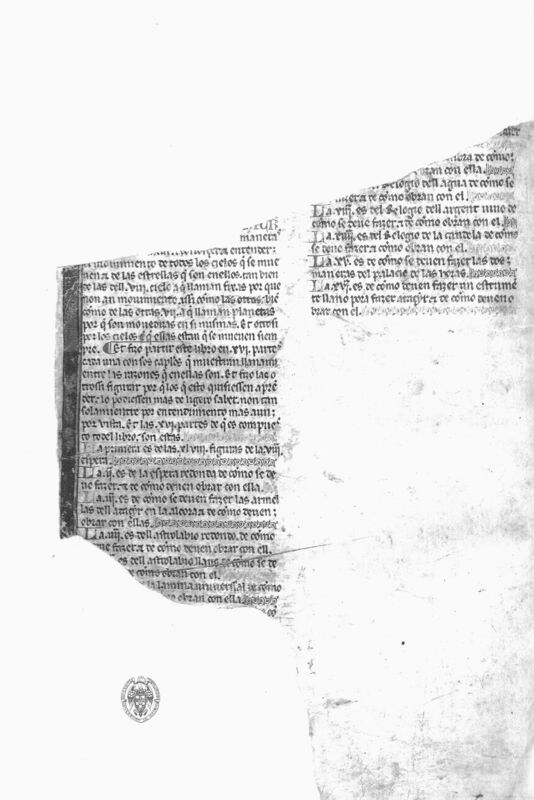 maneras
entender;
mouimiento de todos los cielos q̃ se mue
uen ⁊ de las estrellas q̃ son enellos. tan bien
de las dell .viii. cielo a q̃ llaman fixas por que
non an mouimiento assi como las otras; bie
como de las otras .vii. a q̃ llaman planetas
por q̃ son mouedizas en si mismas. Et otrossi
por los cielos en q̃ ellas estan q̃ se mueuen siem
pre. Et fizo partir este libro en .xvi. partes
cada una con sos capitolos q̃ muestran llanamiente
las razones q̃ enellas son. Et fizo las o
trossi figurar por q̃ los q̃ esto quisiessen apren
der; lo podiessen mas de ligero saber. non tan
solamientre por entendimiento mas aun;
por uista. Et las .xvi. partes de q̃ es compues
to todel libro. son estas.
La primera es de las .xlviii. figuras de la .viii.
espera.
La .ii. es de la espera redonda de cómo se de
ue fazer. ⁊ de cómo deuen obrar con ella.
La .iii. es de cómo se deuen fazer las armel
las dell atacyr en la alcora ⁊ de cómo deuen;
obrar con ellas.
La .iiii. es dell astrolabio redondo. de cómo
se deue fazer ⁊ de cómo deuen obrar con ell.
es dell astrolabio llano de cómo se de
cómo obran con el.
la lamina uniuersal de cómo
obran con ella.
de cómo;
obran con ella.
relogio dell agua de cómo se
fazer ⁊ cómo obran con el.
La .xiii. es del relogio dell argent uiuo de
cómo se deue fazer ⁊ de cómo obran con el.
La .xiiii. es del relogio de la candela de cómo
se deue fazer ⁊ cómo obran con el.
La .xv. es de cómo se deuen fazer las dos;
maneras del palacio de las horas.
La .xvi. es de cómo deuen fazer un estrumen
te llano pora fazer atacyr ⁊ de cómo deuen o
brar con el.